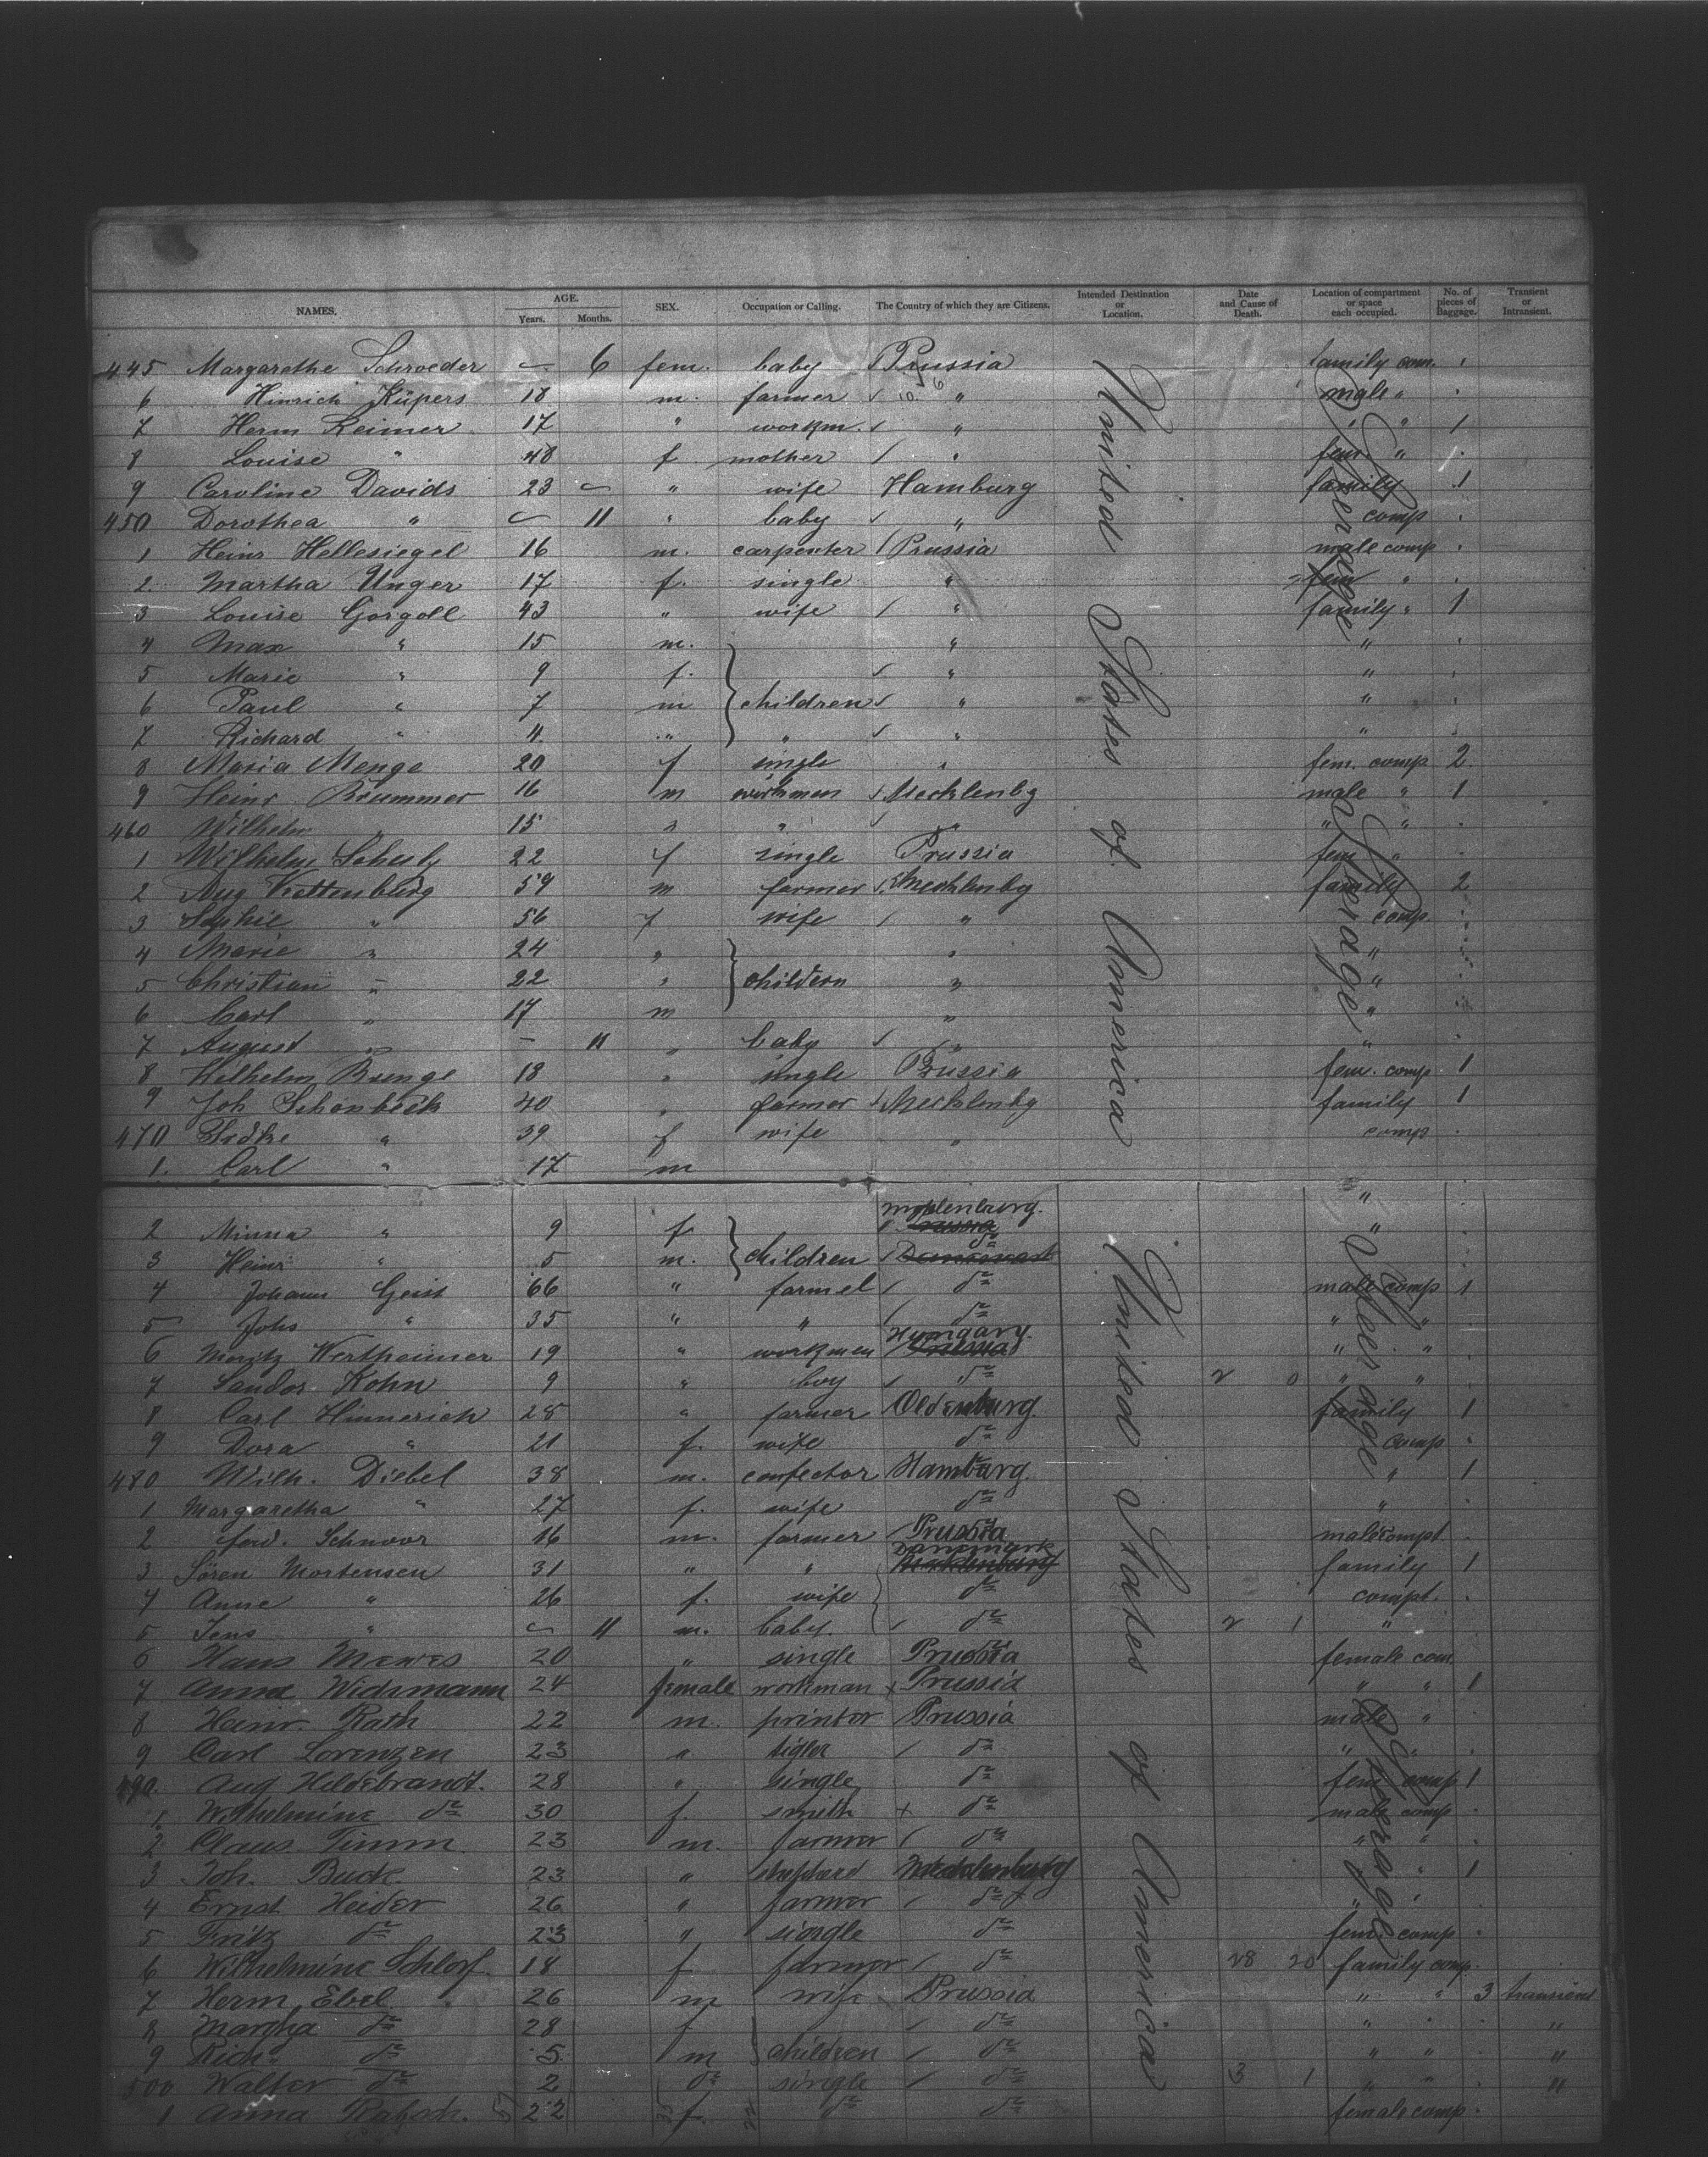 NAMES. AGE. Years. Months. SEX. Occupation or Calling. The Country of which they are Citizens. Intended Destination or Location. Date and Cause of Death. Location of compartment or space each occupied. No. of pieces of Baggage. Transient or Intransient.
445 Margarethe Schroeder 6 fem. baby Prussia family com.
6 Hinrich Küpers 18 m. farmer " male "
7 Herm Reimer 17 " workm. " " " 1
8 Louise " 48 f mother " fem "
9 Caroline Davids 23 " wife Hamburg family 1
450 Dorothea " 11 " baby " comp
1 Heinr Hellesiegel 16 m. carpenter Prussia male comp
2. Martha Unger 17 f. single " fem "
3 Louise Gorgoll 43 " wife " family " 1
4 Max " 15 m. " "
5 Marie " 9 f. " "
6 Paul " 7 m children " "
7 Richard " 4 " " " "
8 Maria Menge 20 f single " fem. comp 2
9 Heinr Brummer 16 m workmen Mecklenbg male " 1
460 Wilhelm " 15 " " " " "
1 Wilhelm Schulz 22 f single Prussia fem "
2 Aug Viettenburg 59 m farmer Mecklenbg family 2
3 Sophie " 56 f wife " comp
4 Marie " 24 " " "
5 Christian " 22 " childern " "
6 Carl " 17 m " "
7 August " 11 " baby " "
8 Wilhelm Bunge 18 " single Prussia fem. comp 1
9 Joh Schonbeck 40 " farmer Mecklenbg family 1
470 " 39 f wife " comp
1. Carl " 17 m "
United States of America
Steerage
Steerage
2 Minna " 9 f Meklenburg. "
3 Heinr " 5 m. children Danemark do
4 Johann Geist 66 " farmel do male comp 1
5 Johs " 35 " " do " "
6 Moritz Wertheimer 19 " workmen Hungary. Prussia " "
7 Sandor Kohn 9 " boy do 2 0 " "
8 Carl Hinnerich 28 " farmer Oldenburg family 1
9 Dora " 21 f. wife do comp
480 Wilh. Diebel 38 m. confector Hamburg " 1
1 Margaretha " 27 f. wife do "
2 ferd. Schnoor 16 m. farmer Prussia male compt
3 Sören Mortensen 31 " " Danemark Mecklenburg family 1
4 Anne " 26 f. wife do compt.
5 Jens " 11 m. baby. do 2 1 "
6 Hans Mewes 20 " single Prussia female com
7 Anna Widsmann 24 female workman + Prussia " " 1
8 Heinr. Rath 22 m. printer Prussia male "
9 Carl Lorenzen 23 " tigler do " "
490. Aug Hildebrandt. 28 " single do fem comp 1
1. Wilhelmine do 30 f. smith + do male comp
2 Claus Timm 23 m. farmer do " "
3 Joh. Buck 23 " Mecklenburg " 1
4 Ernst Heider 26 " farmer do "
5 Fritz do 23 " siongle do fem. comp
6 Wilhelmine Schlorf 18 f farmer do 28 20 family comp.
7 Herm Ebel 26 m wife Prussia " " 3 transient
8 Martha do 28 f do " " "
9 Rich. do 5 m children do " " "
500 Walter do 2 do single do 3 1 " " "
1 Anna 22 f. do do female comp
United States of America
Steerage
Steerage